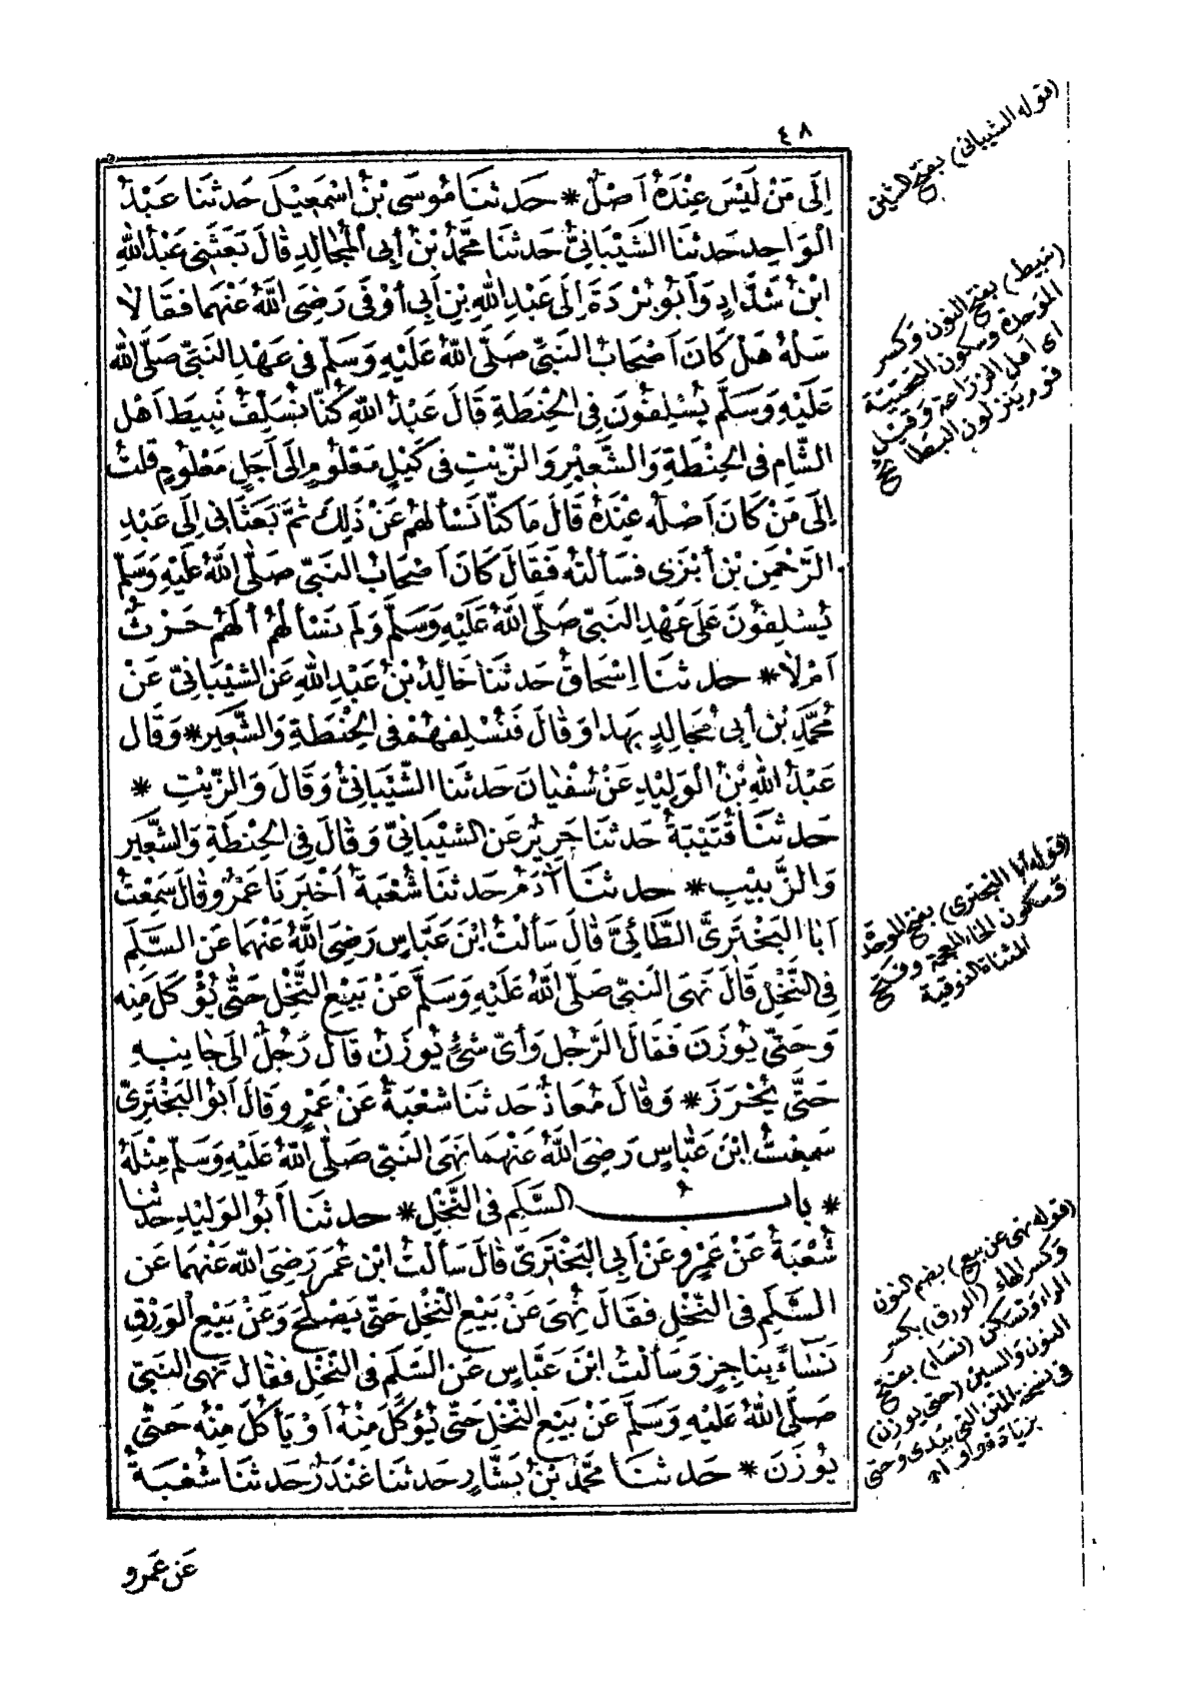 ٤٨
إِلَى مَنْ لَيْسَ عِنْدَهُ أَصْلٌ * حَدثنَا مُوسَى بْنُ اسْمٰعِيْلَ حَدثنَا عَبْدُ
الْوَاحِدِ حَدثنَا الشَّيْبَانِيُّ حَدثنَا مُحَمَّدُ بْنُ أَبِى الْمُجَالِدِ قَالَ بَعَثَنِى عَبْدُ اللهِ
ابْنُ شَدَّادٍ وَأَبُو بُرْدَةَ إِلَى عَبْدِ اللهِ بْنِ أَبِى أَوْفَى رَضِىَ اللهُ عَنْهُمَا فَقَالَا
سَلْهُ هَلْ كَانَ أَصْحَابُ النَّبِىِّ صَلَّى اللهُ عَلَيْهِ وَسَلَّمَ فِى عَهْدِ النَّبِىِّ صَلَّى اللهُ
عَلَيْهِ وَسَلَّمَ يُسْلِفُوْنَ فِى الْحِنْطَةِ قَالَ عَبْدُ اللهِ كُنَّا نُسْلِفُ نَبِيطَ أَهْلِ
الشَّامِ فِى الْحِنْطَةِ وَالشَّعِيْرِ وَالزَّيْتِ فِى كَيْلٍ مَعْلُومٍ إِلَى أَجَلٍ مَعْلُومٍ قُلْتُ
إِلَى مَنْ كَانَ أَصْلُهُ عِنْدَهُ قَالَ مَا كُنَّا نَسْأَلُهُمْ عَنْ ذٰلِكَ ثُمَّ بَعَثَانِى إِلَى عَبْدِ
الرَّحْمٰنِ بْنِ أَبْزَى فَسَأَلْتُهُ فَقَالَ كَانَ أَصْحَابُ النَّبِىِّ صَلَّى اللهُ عَلَيْهِ وَسَلَّمَ
يُسْلِفُوْنَ عَلَى عَهْدِ النَّبِىِّ صَلَّى اللهُ عَلَيْهِ وَسَلَّمَ وَلَمْ نَسْأَلْهُمْ أَلَهُمْ حَرْثٌ
أَمْ لَا * حدثنَا إِسْحَاقُ حَدثنَا خَالِدُ بْنُ عَبْدِ اللهِ عَنِ الشَّيْبَانِىِّ عَنْ
مُحَمَّدِ بْنِ أَبِى مُجَالِدٍ بِهٰذَا وَقَالَ فَنُسْلِفُهُمْ فِى الْحِنْطَةِ وَالشَّعِيْرِ * وَقَالَ
عَبْدُ اللهِ بْنُ الْوَلِيْدِ عَنْ سُفْيَانَ حَدثنَا الشَّيْبَانِىُّ وَقَالَ وَالزَّيْتِ *
حَدثنَا قُتَيْبَةُ حَدثنَا جَرِيْرٌ عَنِ الشَّيْبَانِىِّ وَقَالَ فِى الْحِنْطَةِ وَالشَّعِيْرِ
وَالزَّبِيْبِ * حدثنَا آدَمُ حَدثنَا شُعْبَةُ أَخْبَرَنَا عَمْرٌو قَالَ سَمِعْتُ
أَبَا الْبَخْتَرِىَّ الطَّائِىَّ قَالَ سَأَلْتُ ابْنَ عَبَّاسٍ رَضِىَ اللهُ عَنْهُمَا عَنِ السَّلَمِ
فِى النَّخْلِ قَالَ نَهَى النَّبِىُّ صَلَّى اللهُ عَلَيْهِ وَسَلَّمَ عَنْ بَيْعِ النَّخْلِ حَتَّى يُؤْكَلَ مِنْهُ
وَحَتَّى يُوْزَنَ فَقَالَ الرَّجُلُ وَأَىُّ شَىْءٍ يُوْزَنُ قَالَ رَجُلٌ إِلَى جَانِبِهِ
حَتَّى يُحْرَزَ * وَقَالَ مُعَاذٌ حَدثنَا شُعْبَةُ عَنْ عَمْرٍو قَالَ أَبُو الْبَخْتَرِىِّ
سَمِعْتُ ابْنَ عَبَّاسٍ رَضِىَ اللهُ عَنْهُمَا نَهَى النَّبِىُّ صَلَّى اللهُ عَلَيْهِ وَسَلَّمَ مِثْلَهُ
* بابُ السَّلَمِ فِى النَّخْلِ * حدثنَا أَبُو الْوَلِيْدِ حَدثنَا
شُعْبَةُ عَنْ عَمْرٍو عَنْ أَبِى الْبَخْتَرِىِّ قَالَ سَأَلْتُ ابْنَ عُمَرَ رَضِىَ اللهُ عَنْهُمَا عَنِ
السَّلَمِ فِى النَّخْلِ فَقَالَ نُهِىَ عَنْ بَيْعِ النَّخْلِ حَتَّى يَصْلُحَ وَعَنْ بَيْعِ الْوَرِقِ
نَسَاءً بِنَاجِزٍ وَسَأَلْتُ ابْنَ عَبَّاسٍ عَنِ السَّلَمِ فِى النَّخْلِ فَقَالَ نَهَى النَّبِىُّ
صَلَّى اللهُ عَلَيْهِ وَسَلَّمَ عَنْ بَيْعِ النَّخْلِ حَتَّى يُؤْكَلَ مِنْهُ أَوْ يَأْكُلَ مِنْهُ حَتَّى
يُوْزَنَ * حَدثنَا مُحَمَّدُ بْنُ بَشَّارٍ حَدثنَا غُنْدَرٌ حَدثنَا شُعْبَةُ
عَنْ عَمْرٍو
(قوله الشيبانى) بفتح الشين
(نبيط) بفتح النون وكسر
الموحدة وسكون التحتية
اى اهل الزراعة وقيل
قوم ينزلون البطائح
(قوله ابا البخترى) بفتح الموحدة
وسكون الخاء المعجمة وفتح
المثناة الفوقية
(قوله نهى عن بيع) بضم النون
وكسر الهاء (الورق) بكسر
الراء وتسكن (نساء) بفتح
النون والسين (حتى يوزن)
فى نسخة المتن التى بيدى وحتى
بزيادة واو اه